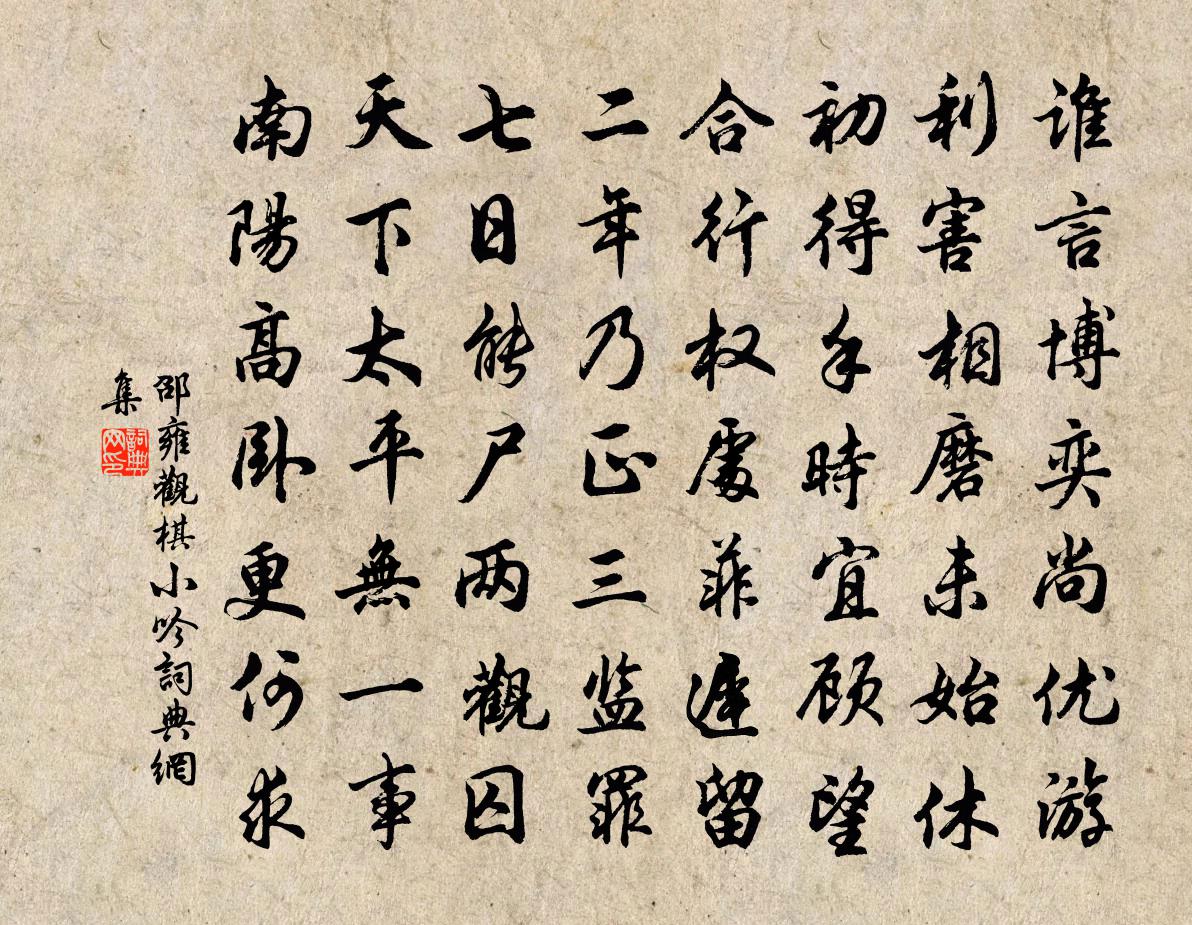 谁言博奕尚优游
利害相磨未始休
初得手時宜顾望
合行权處莫遲留
二年乃正三监罪
七日能尸两觀囚
天下太平無一事
南陽高卧更何求
邵雍觀棋小吟詞典網
集
詞典網印